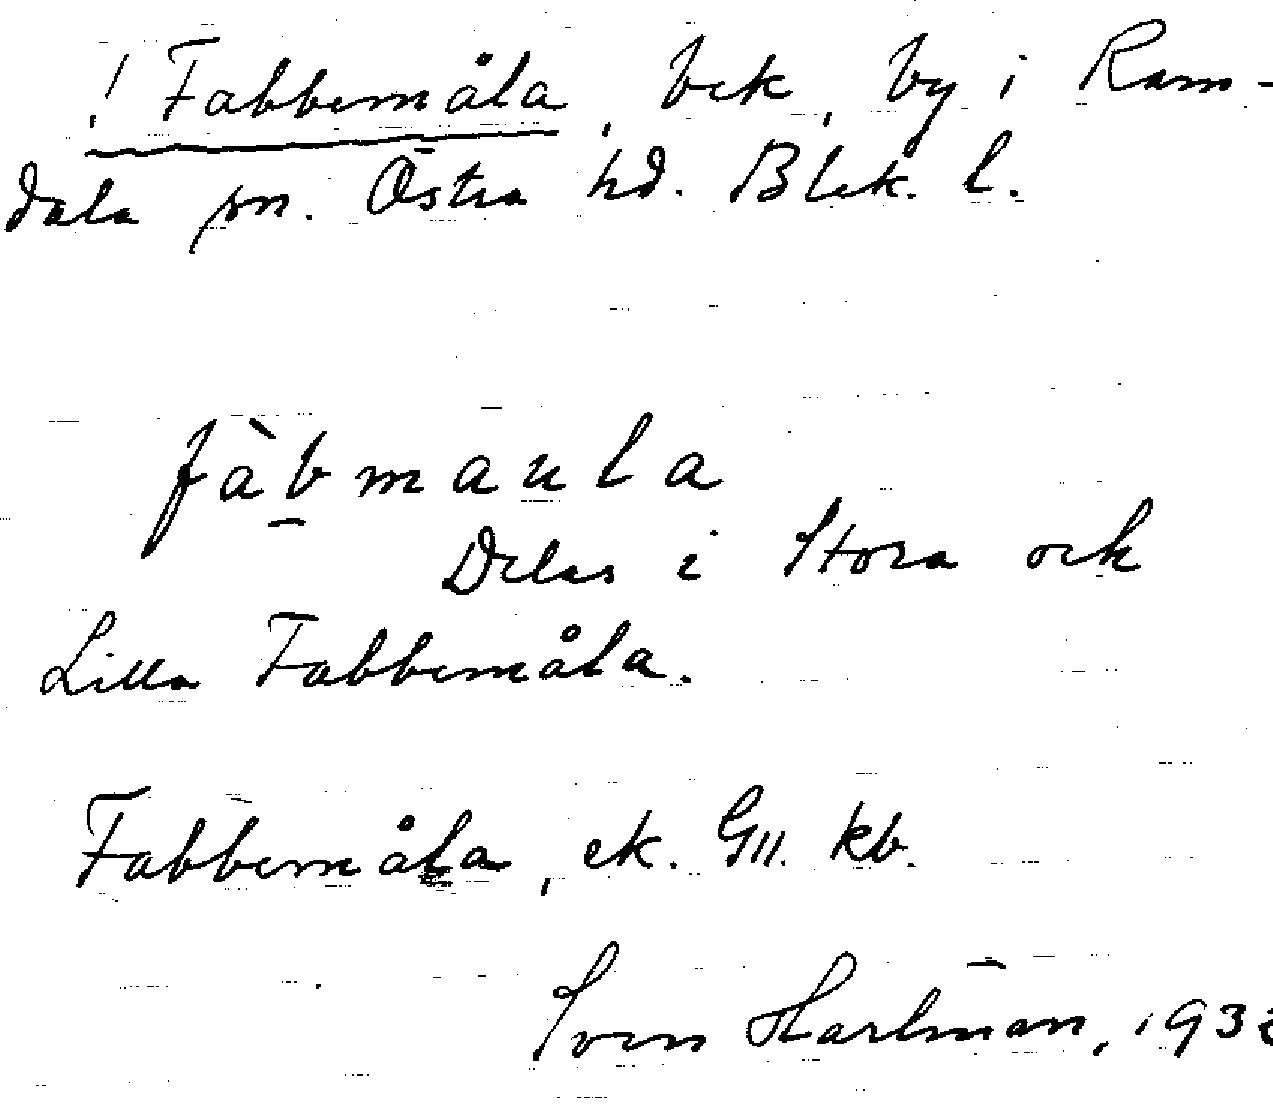 ! Fabbemåla, bek, by i Ram-
dala sn. Östra hd. Blek. l.
fàbmaula
Delas i Stora och
Lilla Fabbemåla.
Fabbemåla, ek. GII. kb.
Sven Hartman,